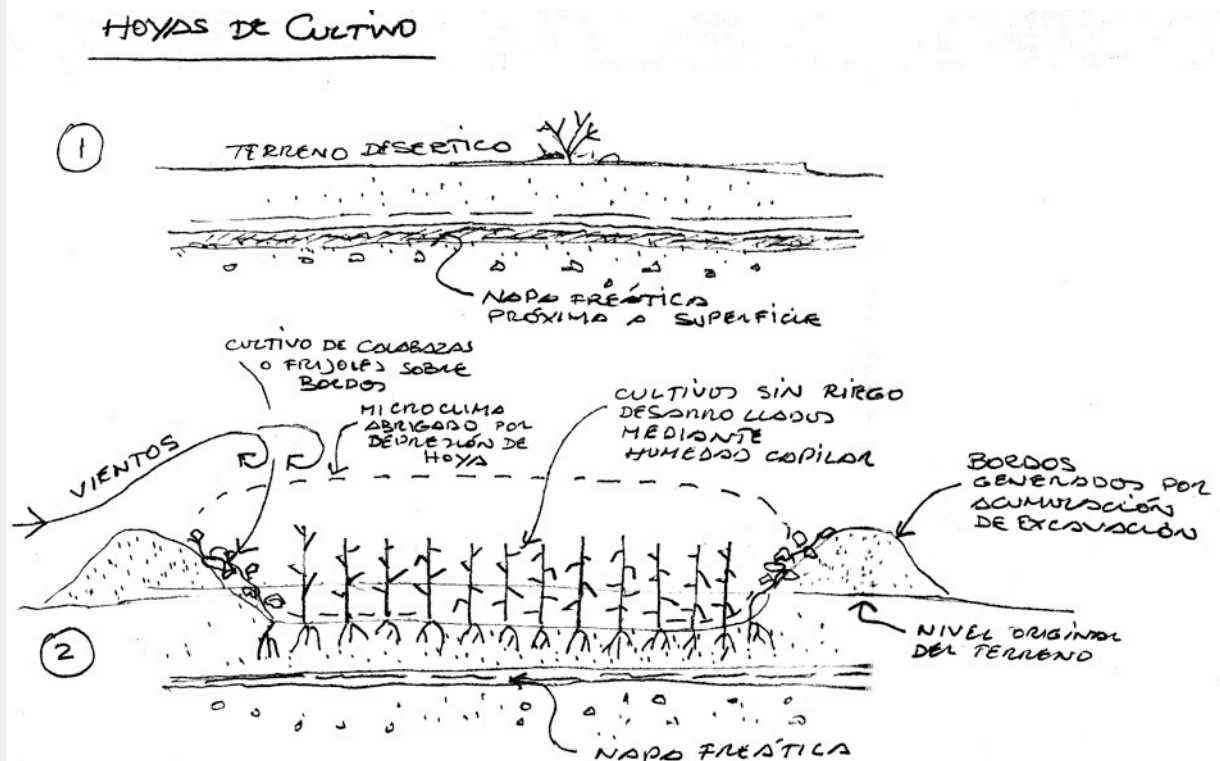 HOYAS DE CULTIVO
1
TERRENO DESERTICO
NAPA FREÁTICA
PRÓXIMA A SUPERFICIE
CULTIVO DE CALABAZAS
O FRIJOLES SOBRE
BORDOS
MICROCLIMA
ABRIGADO POR
DEPRESIÓN DE
HOYA
CULTIVOS SIN RIEGO
DESARROLLADOS
MEDIANTE
HUMEDAD CAPILAR
VIENTOS
BORDOS
GENERADOS POR
ACUMULACIÓN
DE EXCAVACIÓN
2
NIVEL ORIGINAL
DEL TERRENO
NAPA FREÁTICA